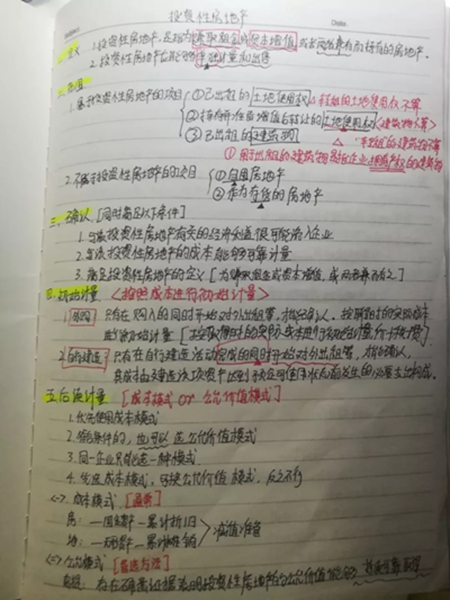 投资性房地产
一、定义 1.投资性房地产,是指为赚取租金或资本增值,或者两者兼有而持有的房地产。
2.投资性房地产应当能够单独计量和出售
二、范围
1.属于投资性房地产的项目 ①已出租的土地使用权 △转租的土地使用权不算
②持有并准备增值后转让的土地使用权 <建筑物不算>
③已出租的建筑物 △
①用于出租的建筑物是指企业拥有产权的建筑物
2.不属于投资性房地产的项目 ①自用房地产
②作为存货的房地产
三、确认 [同时满足以下条件]
1.与该投资性房地产有关的经济利益很可能流入企业
2.与该投资性房地产的成本能够可靠计量
3.满足投资性房地产的定义 [为赚取租金或资本增值,或两者兼有之]
四、初始计量 <按照成本进行初始计量>
1.外购 只有在购入的同时开始对外出租,才能确认。按取得时的实际成本
进行初始计量
2.自行建造 只有在自行建造活动完成的同时开始对外出租,才能确认。
其成本由建造该项资产达到预定可使用状态前发生的必要支出构成。
五、后续计量 [成本模式 or 公允价值模式]
1.优先使用成本模式
2.满足条件的,也可以选公允价值模式
3.同一企业只能选一种模式
4.先选成本模式,可转公允价值模式,反之不行
<一>成本模式 [通常]
房:—固定资产—累计折旧 >减值准备
地:—无形资产—累计摊销
<二>公允模式
前提:存在确凿证据表明投资性房地产的公允价值能够持续可靠取得